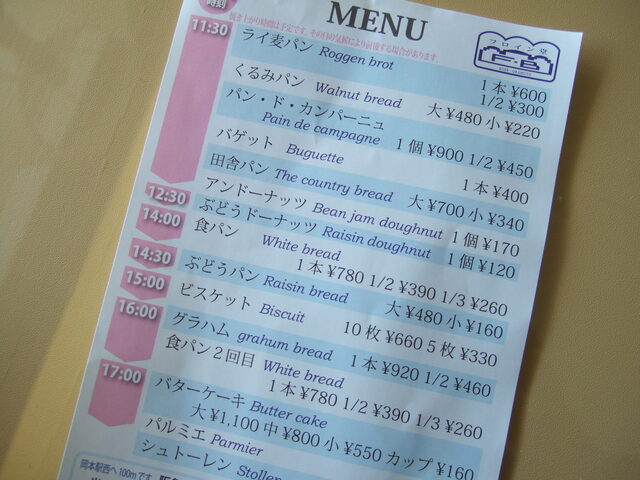 時刻
MENU
焼き上がり時間は予定です。その日の気候により前後する場合があります
フロイン堂
F-B
11:30
ライ麦パン Roggen brot
1本 ¥600
1/2 ¥300
くるみパン Walnut bread 大 ¥480 小 ¥220
パン・ド・カンパーニュ
Pain de campagne 1個 ¥900 1/2 ¥450
バゲット Buguette 1本 ¥400
田舎パン The country bread 大 ¥700 小 ¥340
12:30
アンドーナッツ Bean jam doughnut 1個 ¥170
ぶどうドーナッツ Raisin doughnut 1個 ¥120
14:00
食パン White bread
1本 ¥780 1/2 ¥390 1/3 ¥260
14:30
ぶどうパン Raisin bread 大 ¥480 小 ¥160
15:00
ビスケット Biscuit 10枚 ¥660 5枚 ¥330
16:00
グラハム grahum bread 1本 ¥920 1/2 ¥460
食パン2回目 White bread
1本 ¥780 1/2 ¥390 1/3 ¥260
17:00
バターケーキ Butter cake
大 ¥1,100 中 ¥800 小 ¥550 カップ ¥160
パルミエ Parmier
シュトーレン Stollen
岡本駅西へ100mです。